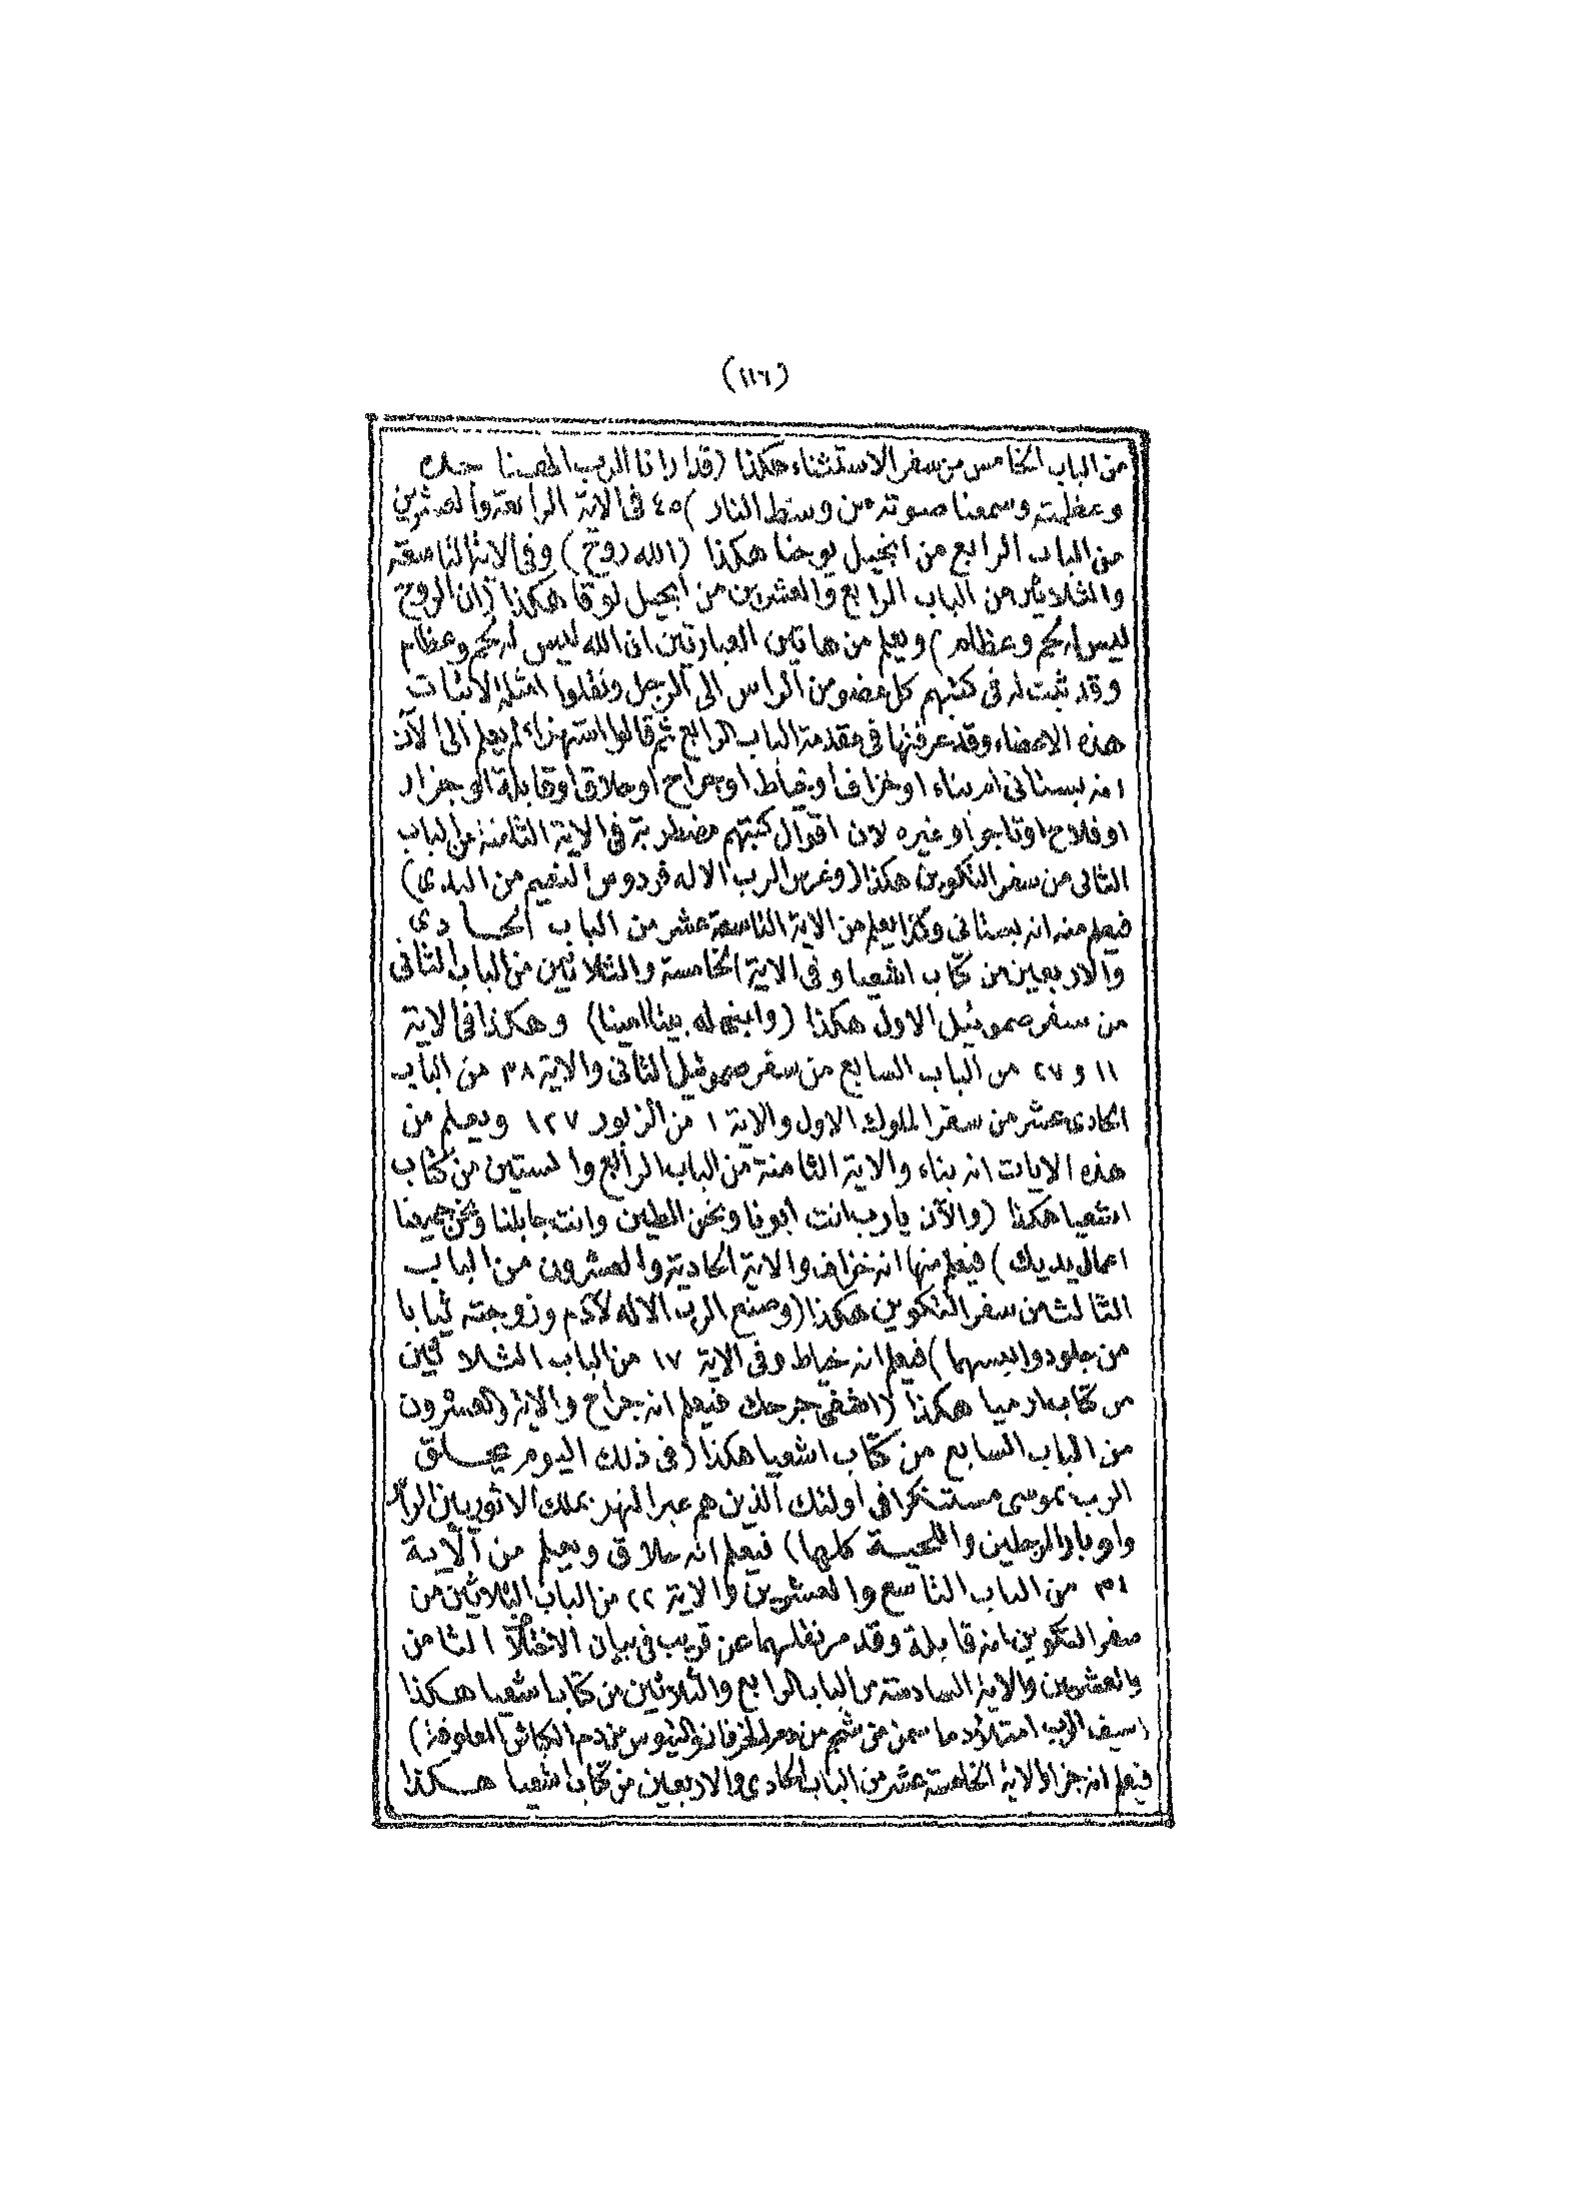 (١١٦)
من الباب الخامس من سفر الاستثناء هكذا (قد ارانا الرب الهنا جلاله
وعظمته وسمعنا صوته من وسط النار) ٤٥ فى الاية الرابعة والعشرين
من الباب الرابع من انجيل يوحنا هكذا (الله روح) وفى الاية التاسعة
والثلاثين من الباب الرابع والعشرين من انجيل لوقا هكذا (ان الروح
ليس له لحم وعظام) ويعلم من هاتين العبارتين ان الله ليس له لحم وعظام
وقد ثبت له فى كتبهم كل عضو من الراس الى الرجل ونقلوا امثلة لاثبات
هذه الاعضاء وقد عرفتها فى مقدمة الباب الرابع ثم قالوا استهزاء لم يعلم الى الآن
انه بستانى ام بناء او خزاف او خياط او جراح او حلاق او قابلة او جزار
او فلاح او تاجر او غيره لان اقوال كتبهم مضطربة فى الاية الثامنة من الباب
الثانى من سفر التكوين هكذا (وغرس الرب الاله فردوس النعيم من البدى)
فيعلم منه انه بستانى وكذا يعلم من الاية التاسعة عشر من الباب الحادى
والاربعين من كتاب اشعيا وفى الاية الخامسة والثلاثين من الباب الثانى
من سفر صموئيل الاول هكذا (وابنى له بيتا امينا) وهكذا فى الاية
١١ و ٢٧ من الباب السابع من سفر صموئيل الثانى والاية ٣٨ من الباب
الحادى عشر من سفر الملوك الاول والاية ١ من الزبور ١٢٧ ويعلم من
هذه الايات انه بناء والاية الثامنة من الباب الرابع والستين من كتاب
اشعيا هكذا (والآن يا رب انت ابونا ونحن الطين وانت جابلنا ونحن جميعنا
اعمال يديك) فيعلم منها انه خزاف والاية الحادية والعشرون من الباب
الثالث من سفر التكوين هكذا (وصنع الرب الاله لآدم وزوجته ثيابا
من جلود والبسهما) فيعلم انه خياط وفى الاية ١٧ من الباب الثلاثين
من كتاب ارميا هكذا (اشفى جرحك فيعلم انه جراح والاية العشرون
من الباب السابع من كتاب اشعيا هكذا (فى ذلك اليوم يحلق
الرب بموسى مستنكرا فى اولئك الذين هم عبر النهر بملك الاثوريين الراس
واوبار الرجلين واللحية كلها) فيعلم انه حلاق ويعلم من الآية
٣١ من الباب التاسع والعشرين والاية ٢٢ من الباب الثلاثين من
سفر التكوين انه قابلة وقد مر نقلهما عن قريب فى بيان الاختلاف الثامن
والعشرين والاية السادسة من الباب الرابع والثلاثين من كتاب اشعيا هكذا
(سيف الرب امتلأ دما سمن من شحم من دم الخرفان والتيوس من دم الكباش المعلوفة)
فيعلم انه جزار والاية الخامسة عشر من الباب الحادى والاربعين من كتاب اشعيا هكذا